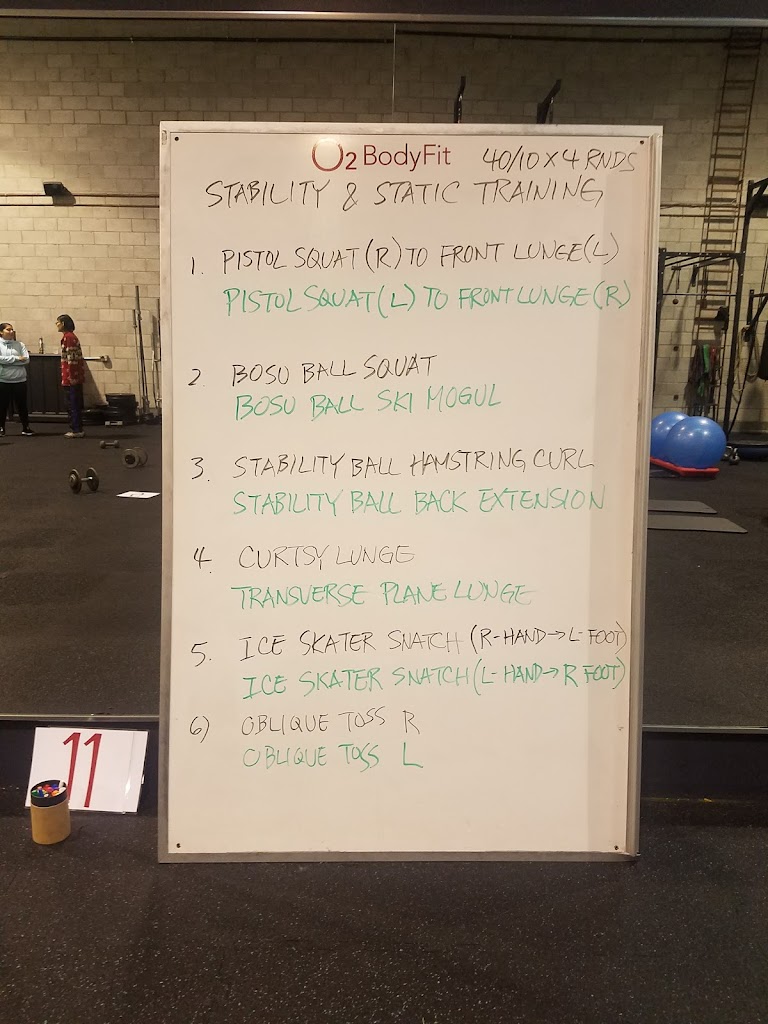 O2 BodyFit 40/10 X 4 RNDS
STABILITY & STATIC TRAINING
1. PISTOL SQUAT (R) TO FRONT LUNGE (L)
PISTOL SQUAT (L) TO FRONT LUNGE (R)
2. BOSU BALL SQUAT
BOSU BALL SKI MOGUL
3. STABILITY BALL HAMSTRING CURL
STABILITY BALL BACK EXTENSION
4. CURTSY LUNGE
TRANSVERSE PLANE LUNGE
5. ICE SKATER SNATCH (R-HAND→L-FOOT)
ICE SKATER SNATCH (L-HAND→R FOOT)
6) OBLIQUE TOSS R
OBLIQUE TOSS L
11